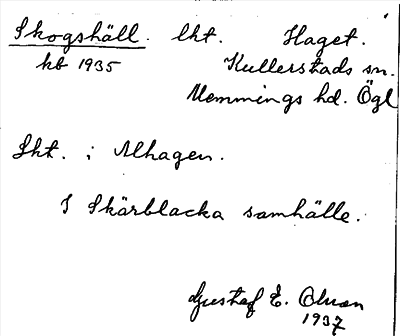 Skogshäll. lht. Haget.
kb 1935 Kullerstads sn.
Memmings hd. Ögl
Lht. i Alhagen.
I Skärblacka samhälle.
Gustaf E. Olson
1937